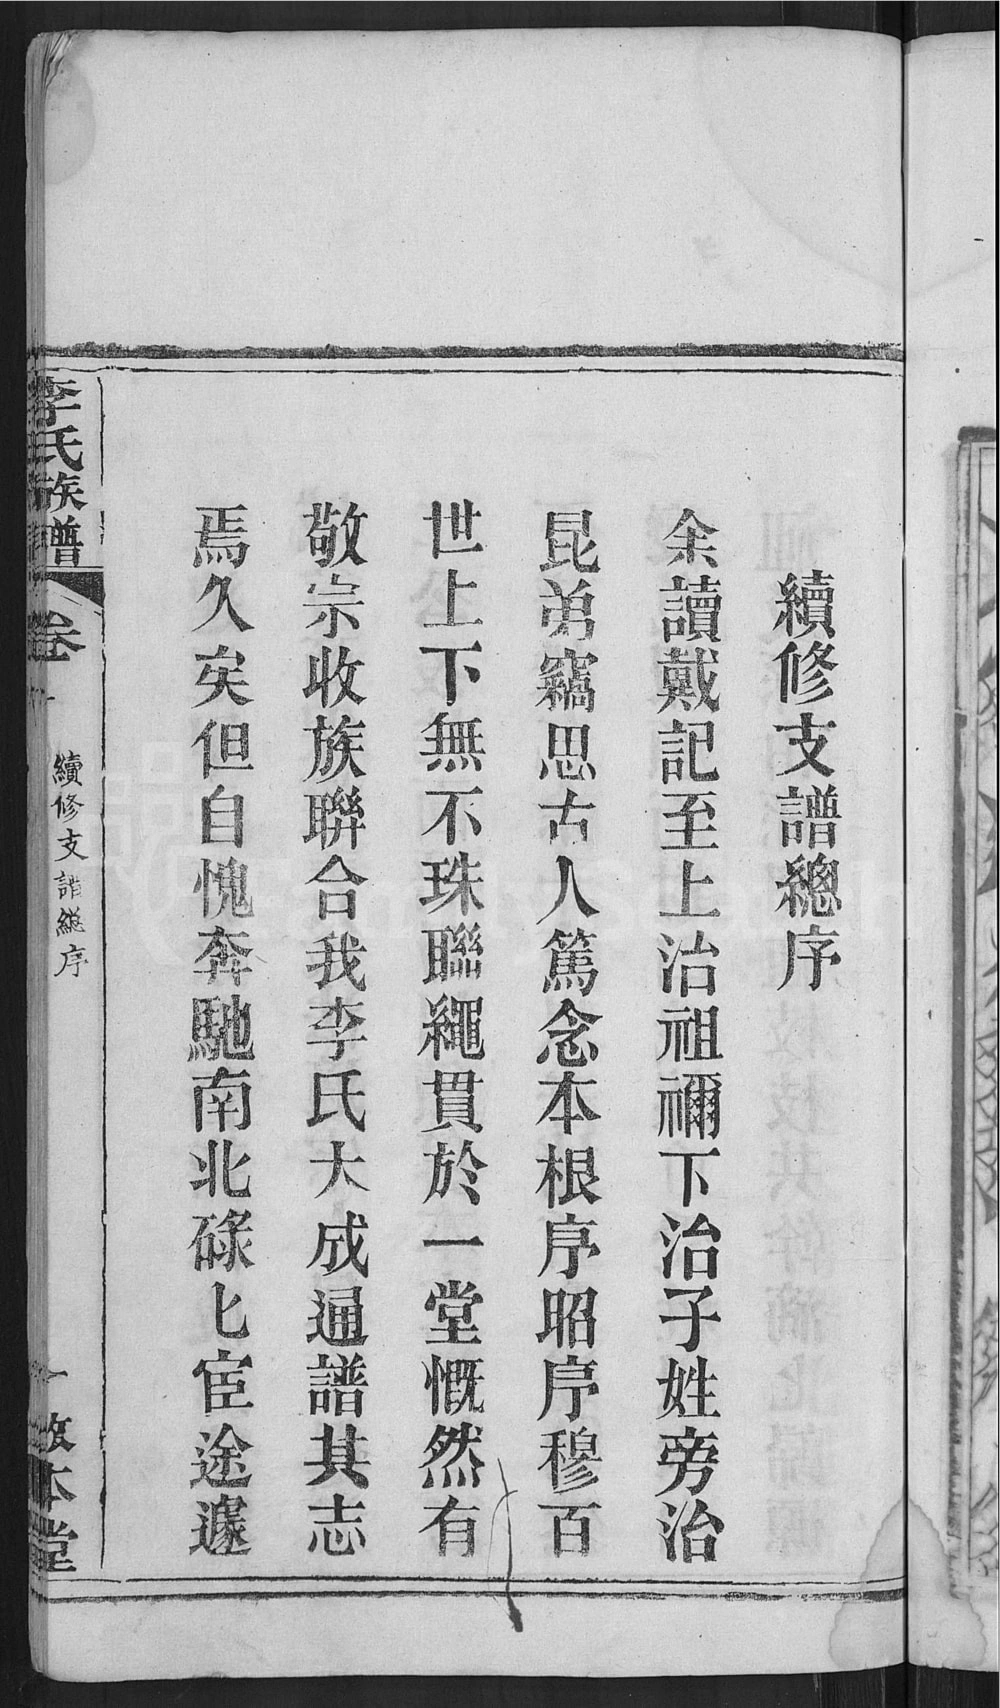 續修支譜總序
余讀戴記至上治祖禰下治子姓旁治
昆弟竊思古人篤念本根序昭序穆百
世上下無不珠聯繩貫於一堂慨然有
敬宗收族聯合我李氏大成通譜其志
焉久矣但自愧奔馳南北碌匕宦途遽
李氏族譜
卷
續修支譜總序
一
本堂